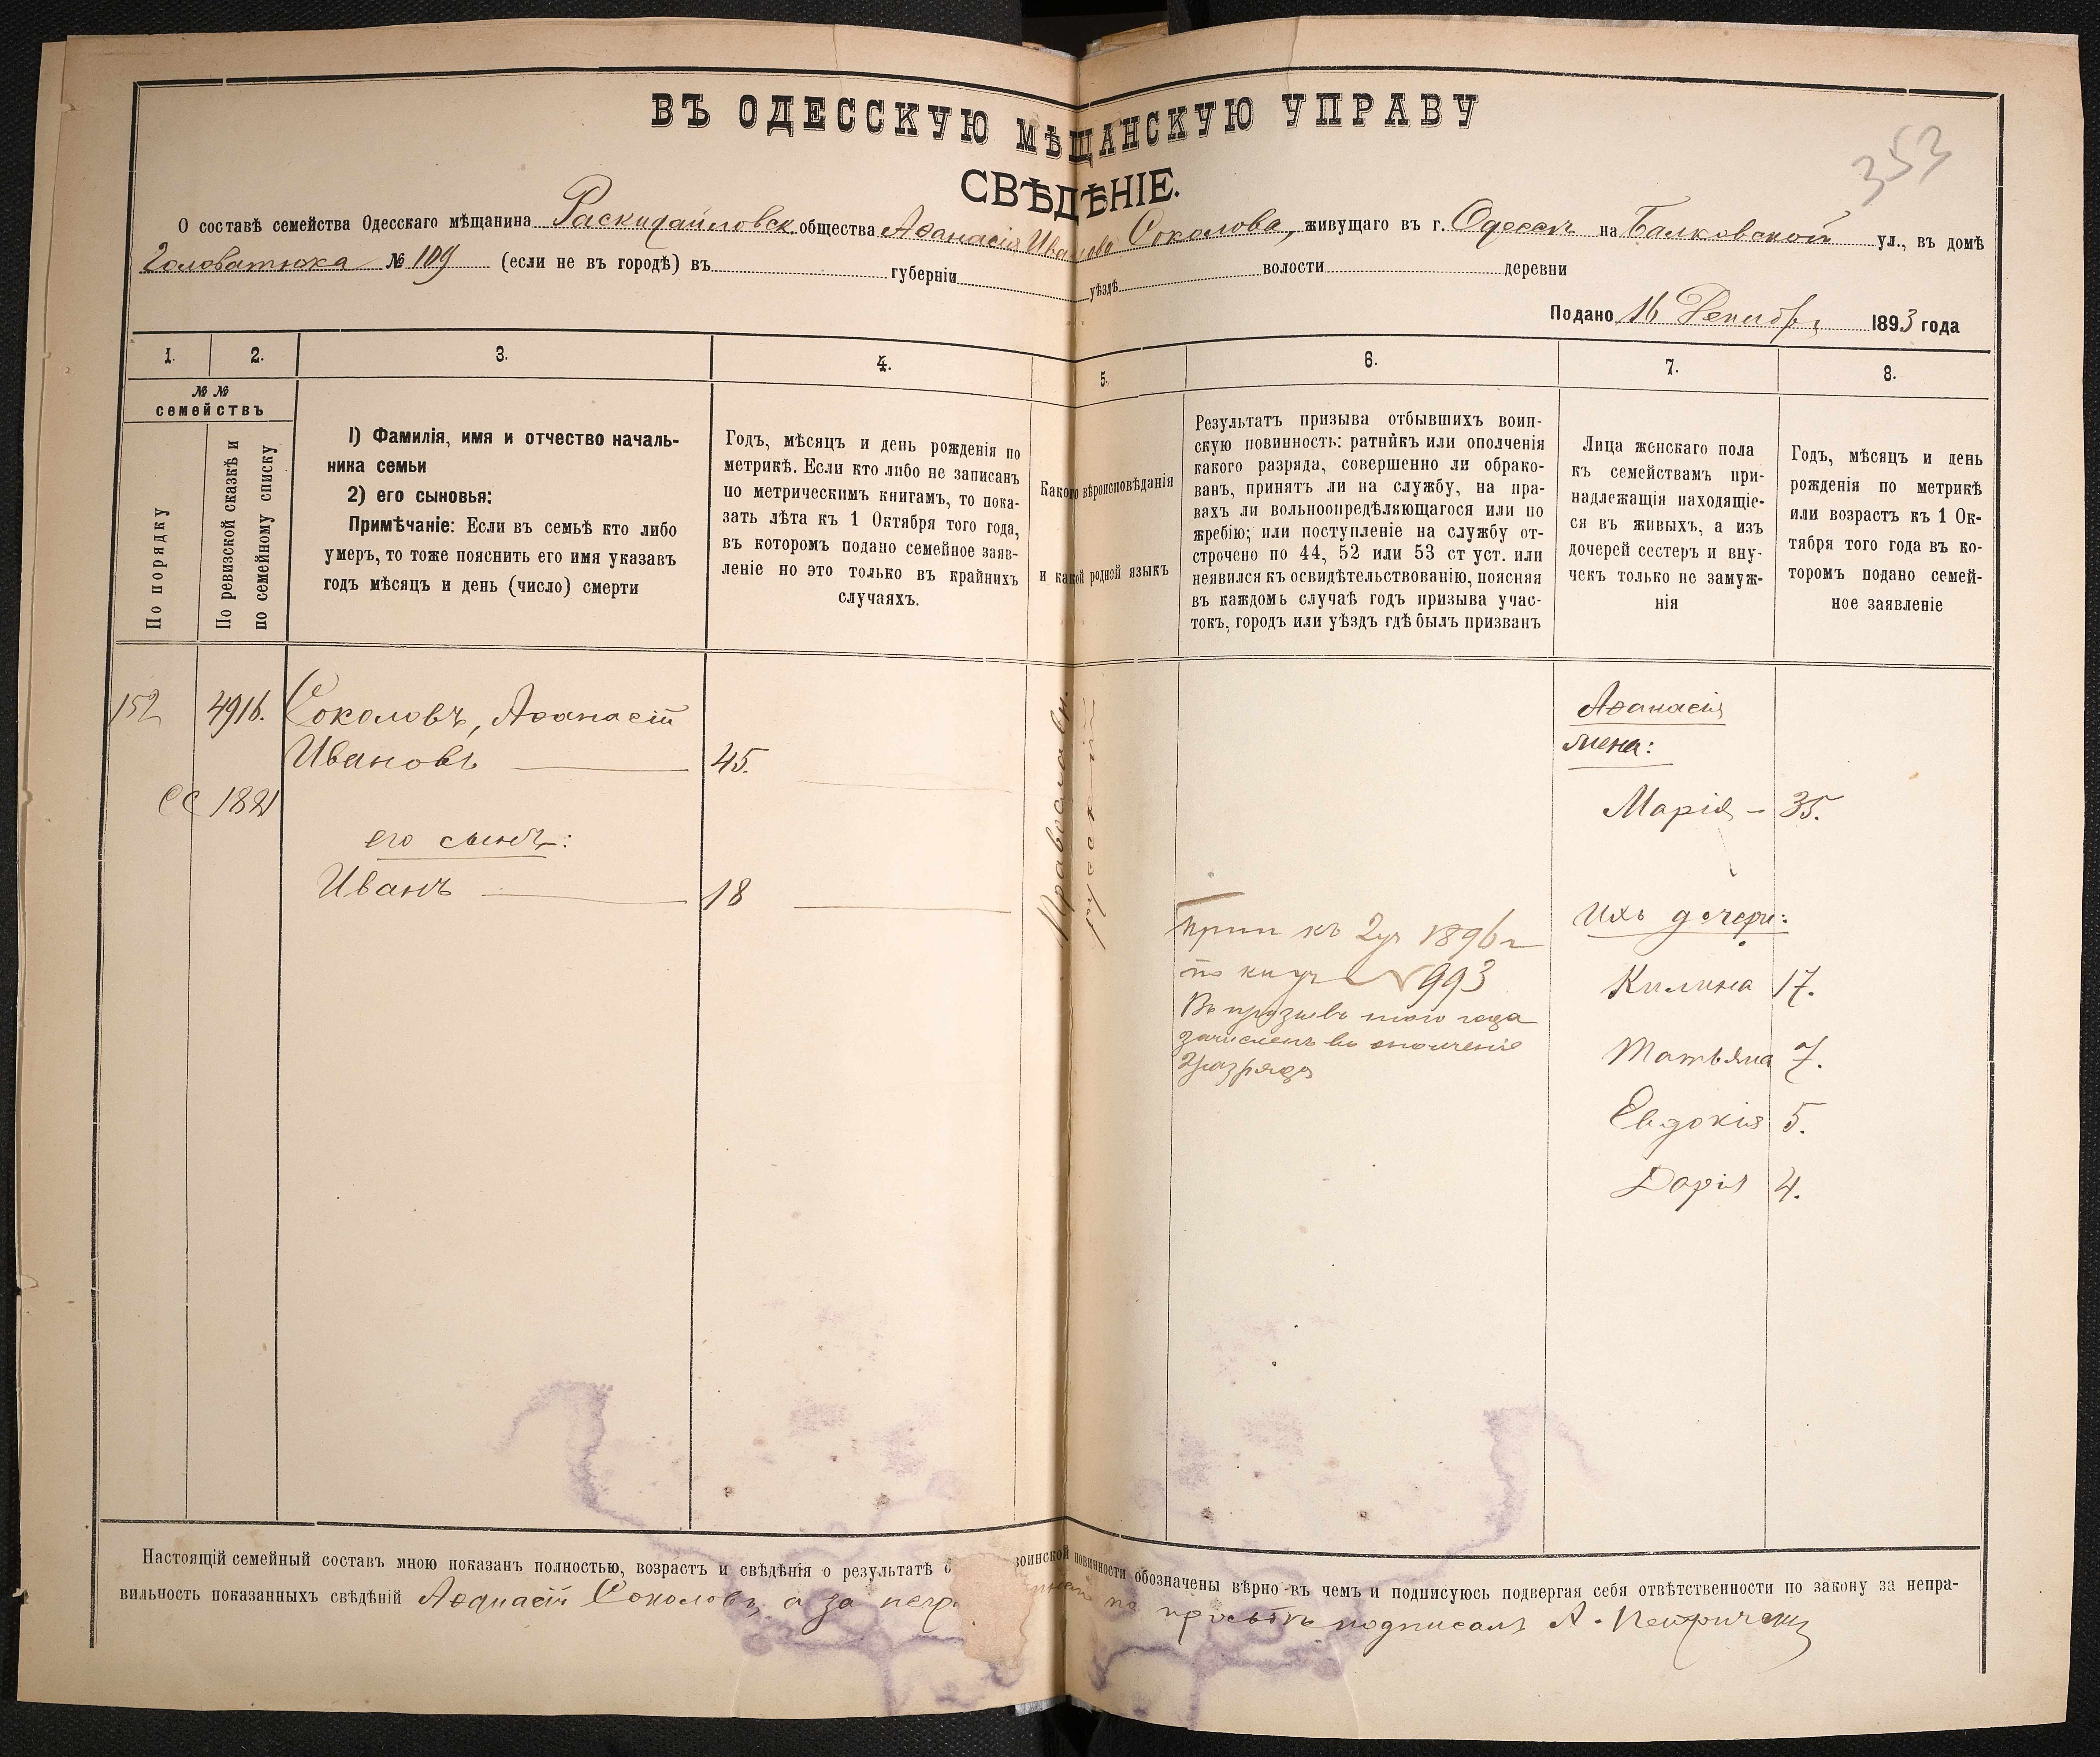 ВЪ ОДЕССКУЮ МѢЩАНСКУЮ УПРАВУ
353
СВѢДѢНІЕ.
О составѣ семейства Одесскаго мѣщанина Раскидайловск общества Аѳанасія Иванова Соколова, живущаго въ г. Одессѣ на Балковской ул., въ домѣ
Головатюка № 109 (если не въ городѣ) въ губерніи уѣздѣ волости деревни
Подано 16 Декабр 1893 года
1. 2. 3. 4. 5. 6. 7. 8.
№ №
семействъ
По порядку
По ревизской сказкѣ и
по семейному списку
1) Фамилія, имя и отчество началь-
ника семьи
2) его сыновья:
Примѣчаніе: Если въ семьѣ кто либо
умеръ, то тоже пояснить его имя указавъ
годъ мѣсяцъ и день (число) смерти
Годъ, мѣсяцъ и день рожденія по
метрикѣ. Если кто либо не записанъ
по метрическимъ книгамъ, то пока-
зать лѣта къ 1 Октября того года,
въ которомъ подано семейное заяв-
леніе но это только въ крайнихъ
случаяхъ.
Какого вѣроисповѣданія
и какой родной языкъ
Результатъ призыва отбывшихъ воин-
скую повинность: ратникъ или ополченія
какого разряда, совершенно ли обрако-
ванъ, принятъ ли на службу, на пра-
вахъ ли вольноопредѣляющагося или по
жребію; или поступленіе на службу от-
строчено по 44, 52 или 53 ст уст. или
неявился къ освидѣтельствованію, поясняя
въ каждомъ случаѣ годъ призыва учас-
токъ, городъ или уѣздъ гдѣ былъ призванъ
Лица женскаго пола
къ семействамъ при-
надлежащія находящіе-
ся въ живыхъ, а изъ
дочерей сестеръ и вну-
чекъ только не замуж-
нія
Годъ, мѣсяцъ и день
рожденія по метрикѣ
или возрастъ къ 1 Ок-
тября того года въ ко-
торомъ подано семей-
ное заявленіе
152 4916. Соколовъ, Аѳанасій
Ивановъ 45.
СС 1881
его сынъ:
Иванъ 18
Православн.
русскій
прип къ 2 уч 1896 г
по книгѣ № 993
Въ призывъ того года
зачисленъ въ ополченіе
2 разряда
Аѳанасія
жена:
Марія – 35.
Ихъ дочери:
Килина 17.
Татьяна 7.
Евдокія 5.
Дарія 4.
Настоящій семейный составъ мною показанъ полностью, возрастъ и свѣдѣнія о результатѣ воинской повинности обозначены вѣрно въ чемъ и подписуюсь подвергая себя отвѣтственности по закону за непра-
вильность показанныхъ свѣдѣній Аѳанасій Соколовъ, а за негр по просьбѣ подписалъ А.